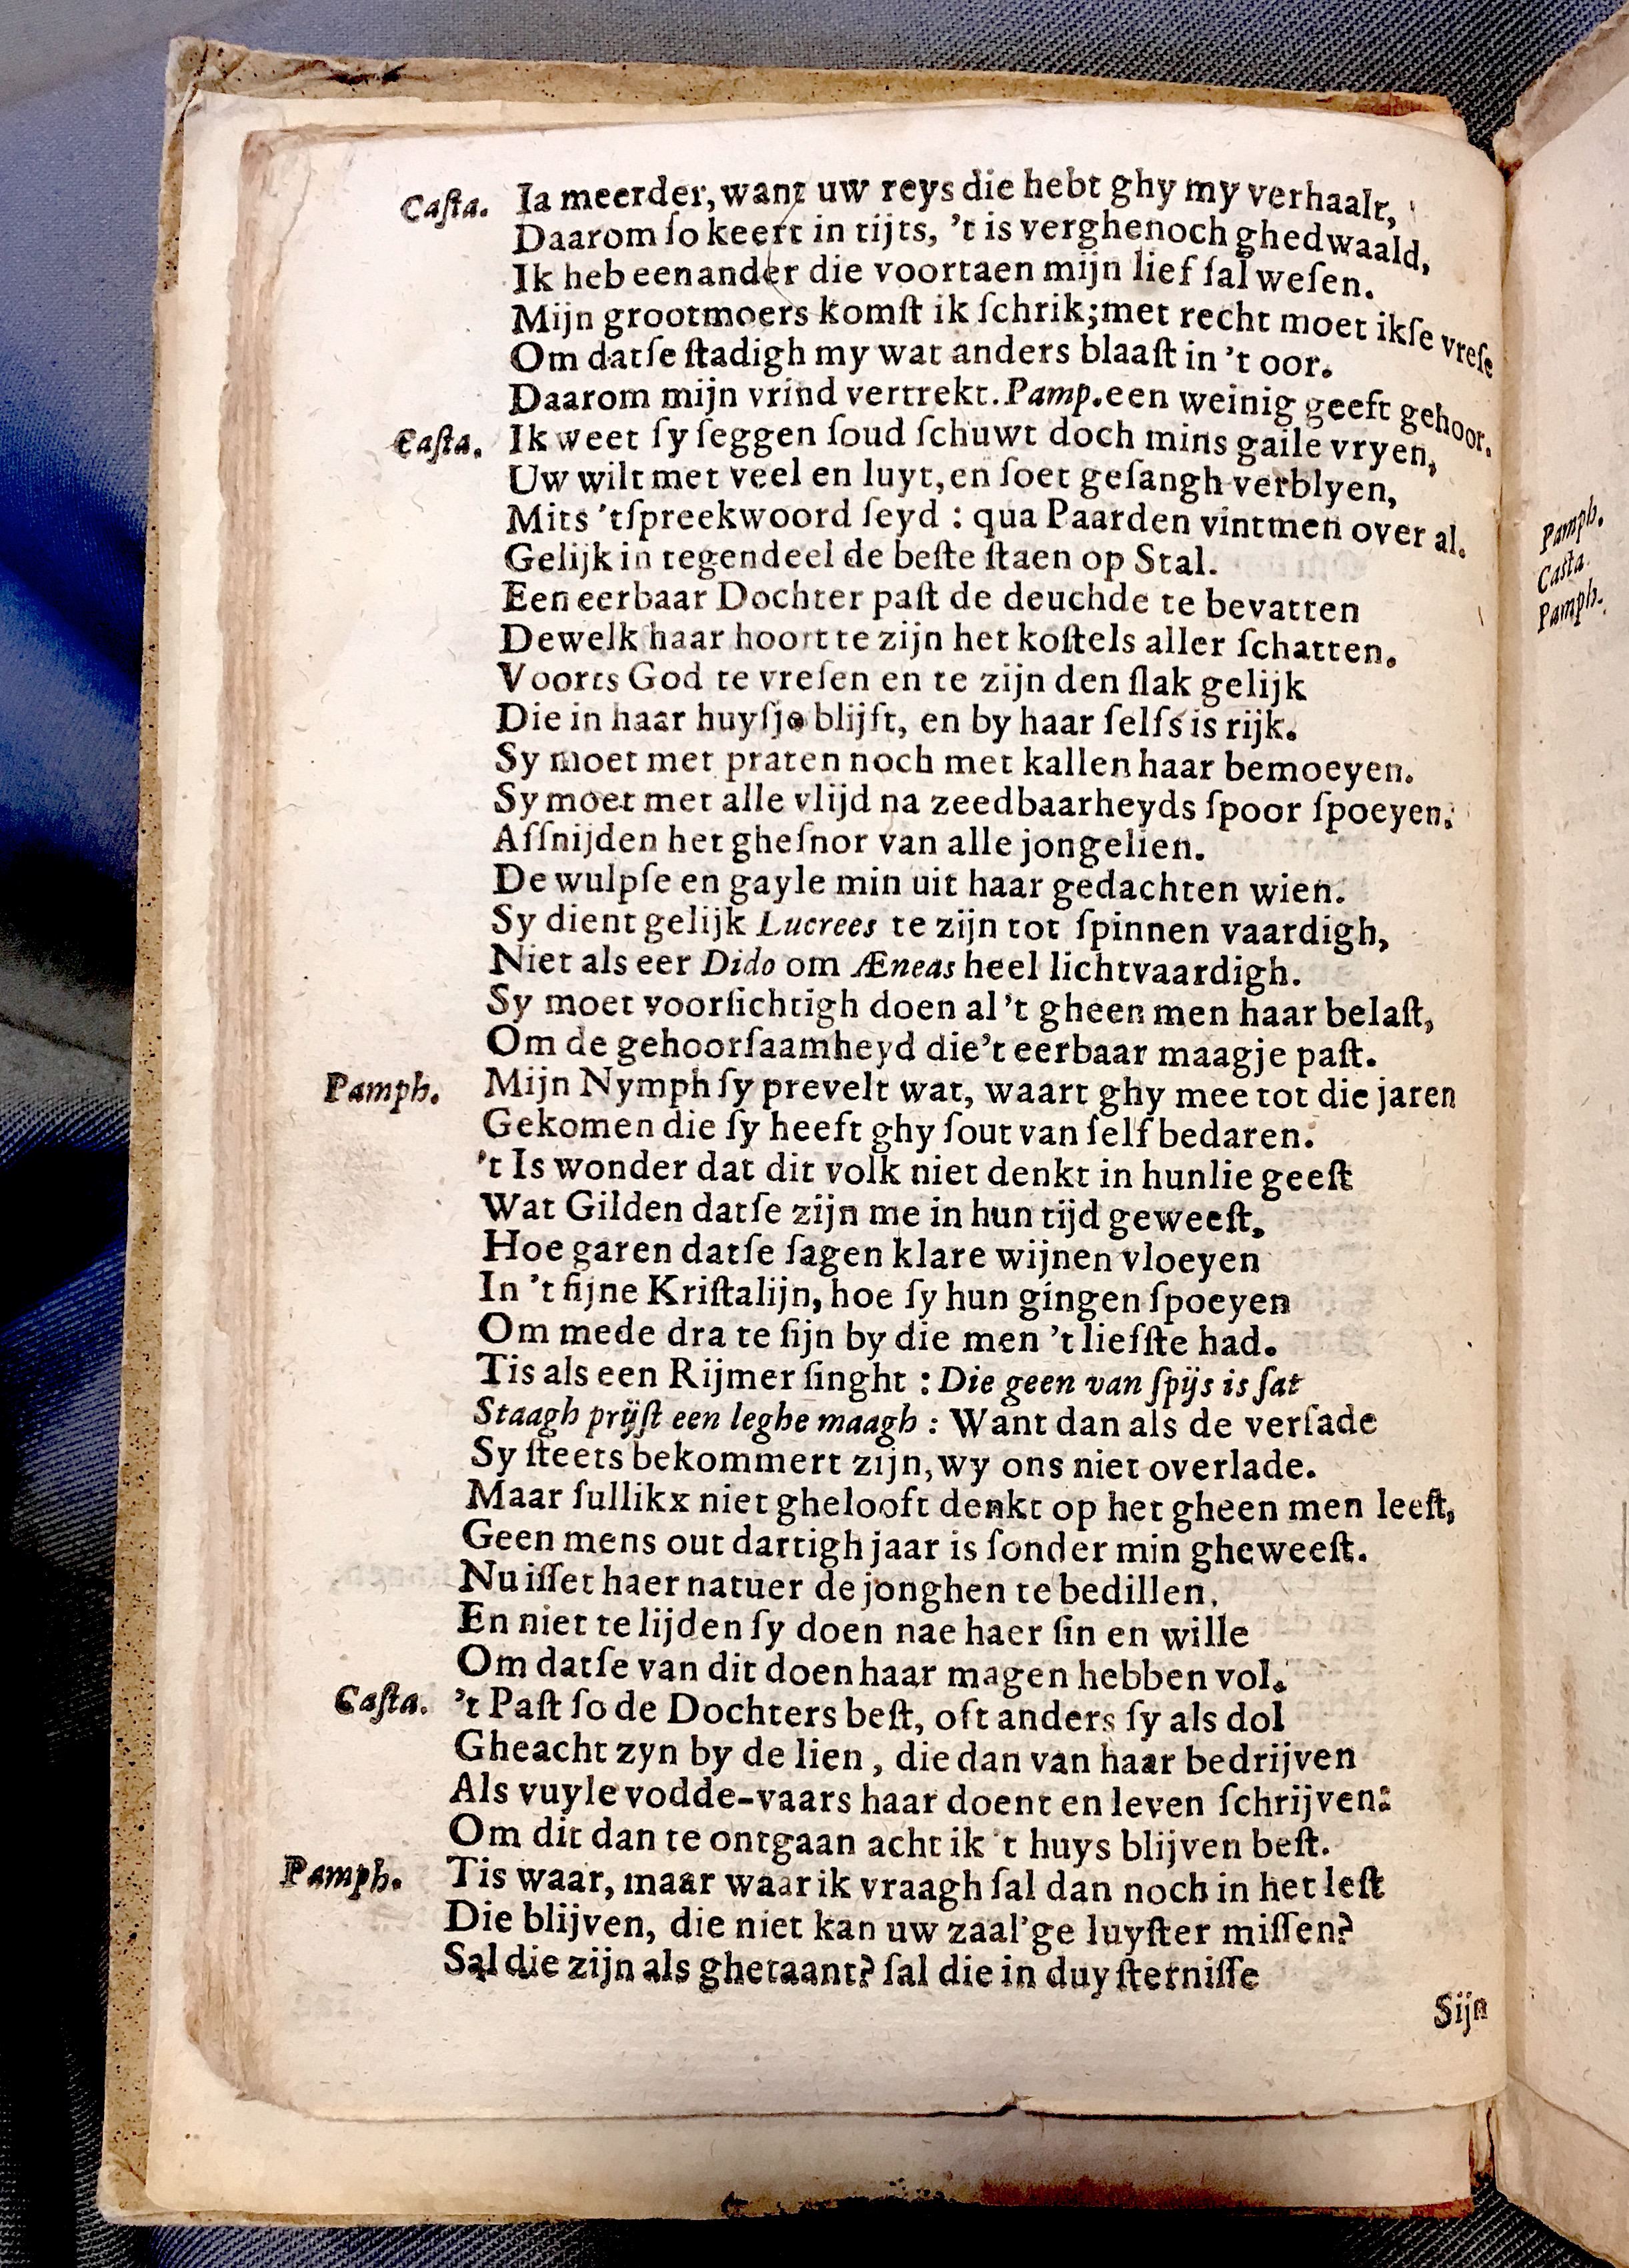 Caſta. Ia meerder, want uw reys die hebt ghy my verhaalt,
Daarom ſo keert in tijts, 't is verghenoch ghedwaald,
Ik heb een ander die voortaen mijn lief ſal weſen.
Mijn grootmoers komſt ik ſchrik; met recht moet ikſe vreſe
Om datſe ſtadigh my wat anders blaaſt in 't oor.
Daarom mijn vrind vertrekt. Pamp. een weinig geeft gehoor.
Caſta. Ik weet ſy ſeggen ſoud ſchuwt doch mins gaile vryen,
Uw wilt met veel en luyt, en ſoet geſangh verblyen,
Mits 'tſpreekwoord ſeyd : qua Paarden vintmen over al.
Gelijk in tegendeel de beſte ſtaen op Stal.
Een eerbaar Dochter paſt de deuchde te bevatten
Dewelk haar hoort te zijn het koſtels aller ſchatten.
Voorts God te vreſen en te zijn den ſlak gelijk
Die in haar huyſje blijft, en by haar ſelfs is rijk.
Sy moet met praten noch met kallen haar bemoeyen.
Sy moet met alle vlijd na zeedbaarheyds ſpoor ſpoeyen.
Afſnijden het gheſnor van alle jongelien.
De wulpſe en gayle min uit haar gedachten wien.
Sy dient gelijk Lucrees te zijn tot ſpinnen vaardigh,
Niet als eer Dido om Æneas heel lichtvaardigh.
Sy moet voorſichtigh doen al 't gheen men haar belaſt,
Om de gehoorſaamheyd die't eerbaar maagje paſt.
Pamph. Mijn Nymph ſy prevelt wat, waart ghy mee tot die jaren
Gekomen die ſy heeft ghy ſout van ſelf bedaren.
't Is wonder dat dit volk niet denkt in hunlie geeſt
Wat Gilden datſe zijn me in hun tijd geweeſt,
Hoe garen datſe ſagen klare wijnen vloeyen
In 't fijne Kriſtalijn, hoe ſy hun gingen ſpoeyen
Om mede dra te ſijn by die men 't liefſte had.
Tis als een Rijmer ſinght : Die geen van ſpijs is ſat
Staagh prijſt een leghe maagh : Want dan als de verſade
Sy ſteets bekommert zijn, wy ons niet overlade.
Maar ſullikx niet ghelooft denkt op het gheen men leeſt,
Geen mens out dartigh jaar is ſonder min gheweeſt.
Nu iſſet haer natuer de jonghen te bedillen,
En niet te lijden ſy doen nae haer ſin en wille
Om datſe van dit doen haar magen hebben vol.
Caſta. 't Paſt ſo de Dochters beſt, oft anders ſy als dol
Gheacht zyn by de lien, die dan van haar bedrijven
Als vuyle vodde-vaars haar doent en leven ſchrijven:
Om dit dan te ontgaan acht ik 't huys blijven beſt.
Pamph. Tis waar, maar waar ik vraagh ſal dan noch in het leſt
Die blijven, die niet kan uw zaal'ge luyſter miſſen?
Sal die zijn als ghetaant? ſal die in duyſterniſſe
Sijn
Pamph.
Caſta.
Pamph.